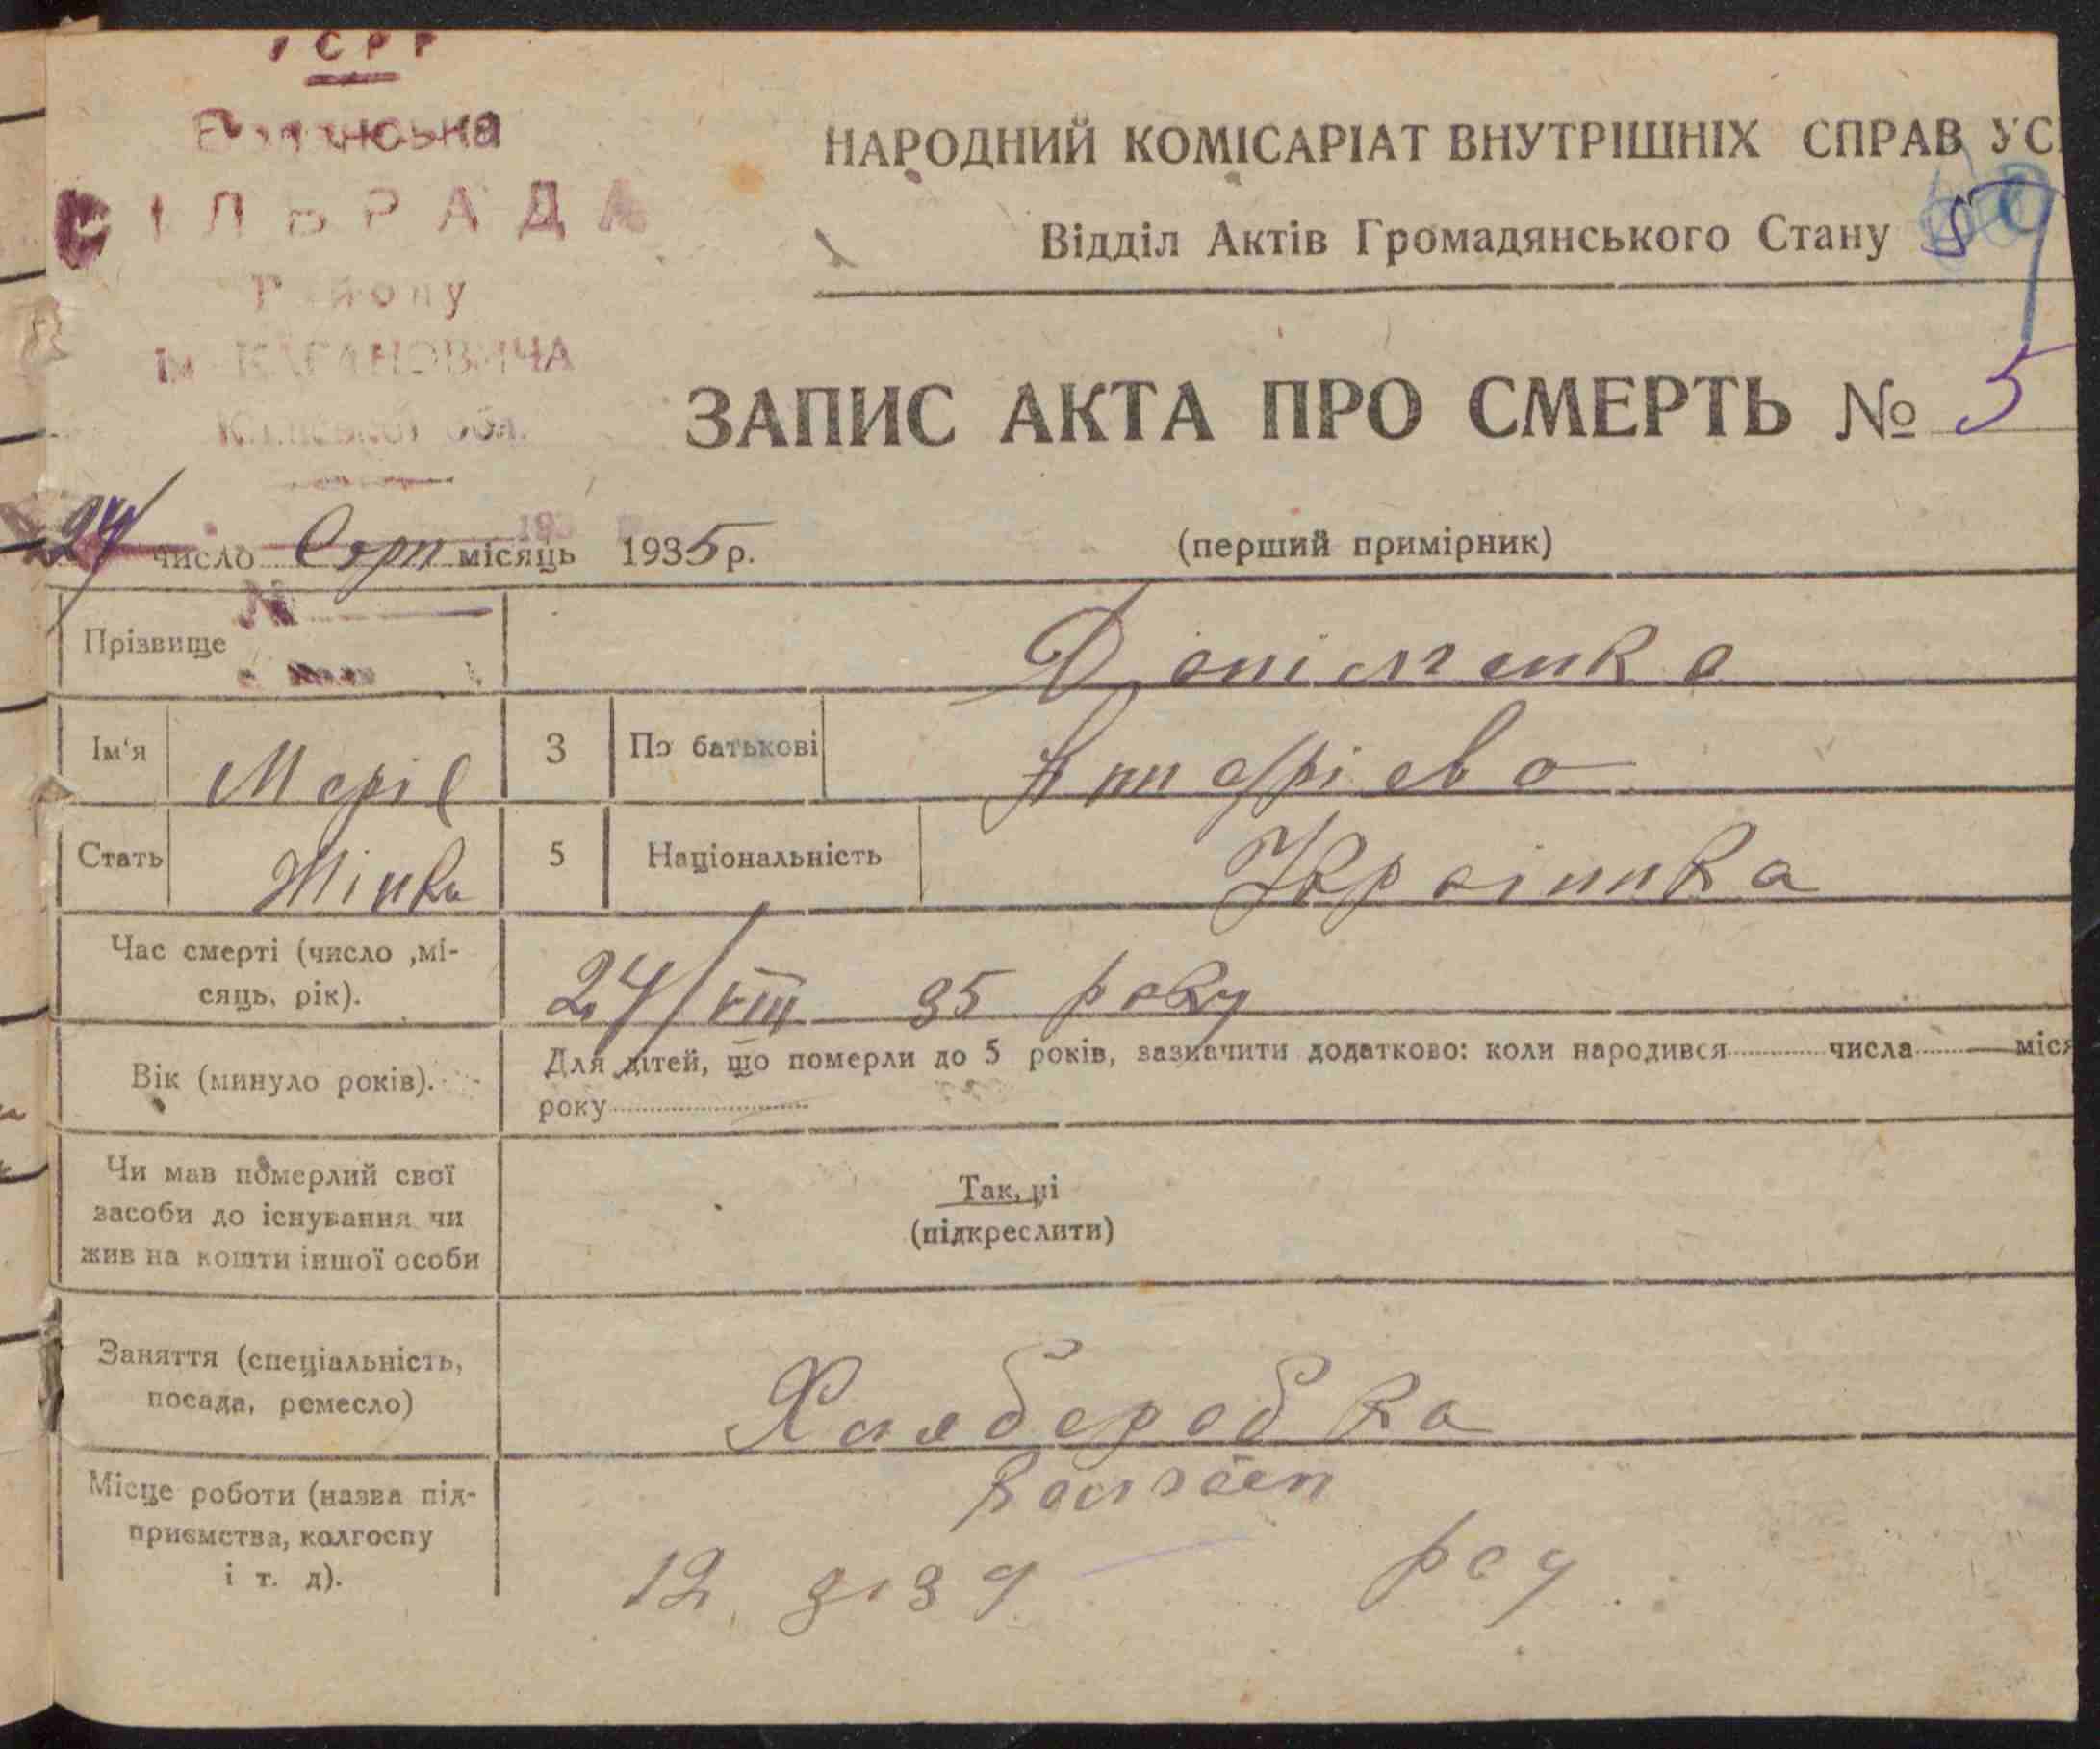 УСРР
СІЛЬРАДА
Району
ім. КАГАНОВИЧА
Київської обл.
НАРОДНИЙ КОМІСАРІАТ ВНУТРІШНІХ СПРАВ УС
Відділ Актів Громадянського Стану 59
ЗАПИС АКТА ПРО СМЕРТЬ № 5
24 число Серп місяць 1935 р.
(перший примірник)
№
Прізвище
Ім‘я Марія 3 По батькові
Стать Жінка 5 Національність Українка
Час смерті (число ,мі-
сяць, рік).
24/VIII 35 року
Вік (минуло років).
Для дітей, що померли до 5 років, зазначити додатково: коли народився числа міся
року
Чи мав померлий свої
засоби до існування чи
жив на кошти іншої особи
Так, ні
(підкреслити)
Заняття (спеціальність,
посада, ремесло)
Хляборобка
Місце роботи (назва під-
приємства, колгоспу
і т. д).
12